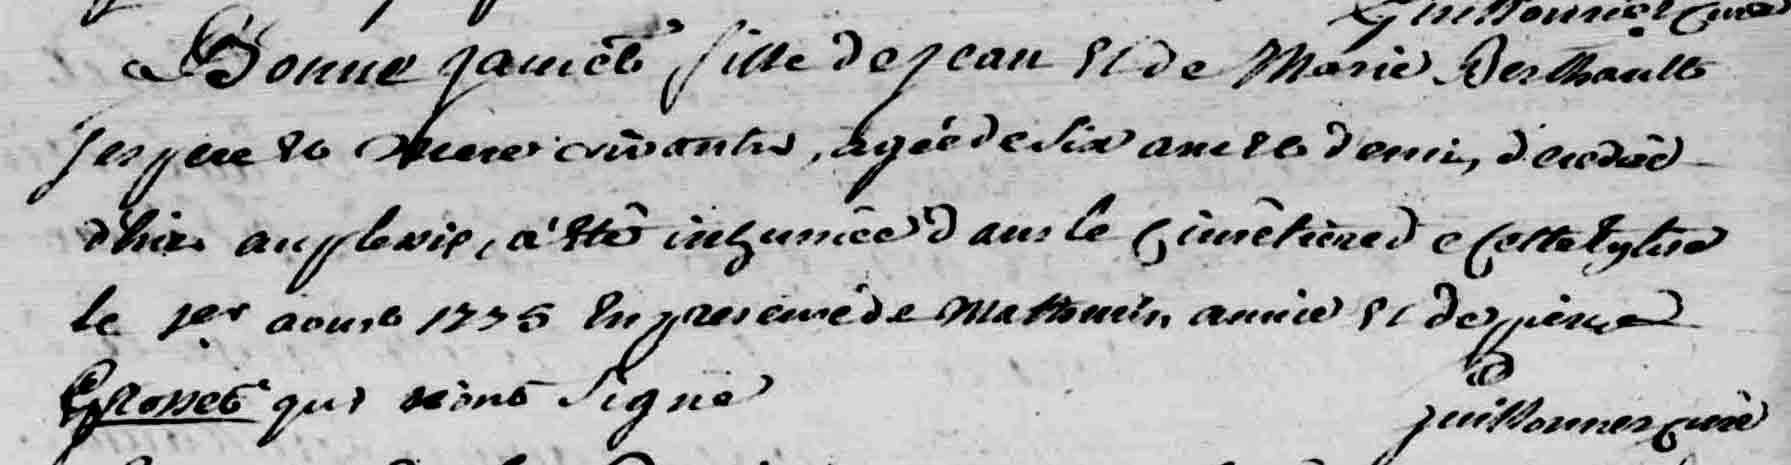 Guillonnier curé
Bonne Jamet fille de jean Et de Marie Berthault
ses pere Et mere vivants, agée de six ans Et demi, decedée
d'hier au plexis, a Eté inhumée dans le Cimetière de Cette Eglise
le 1er aoust 1775 En presence de Mathurin Et de pierre
qui n'ont Signé
curé